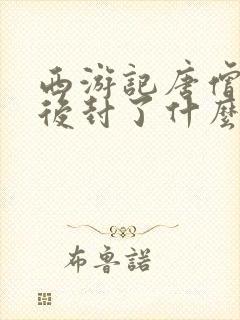 西游記唐僧
後封了什麼
布魯諾